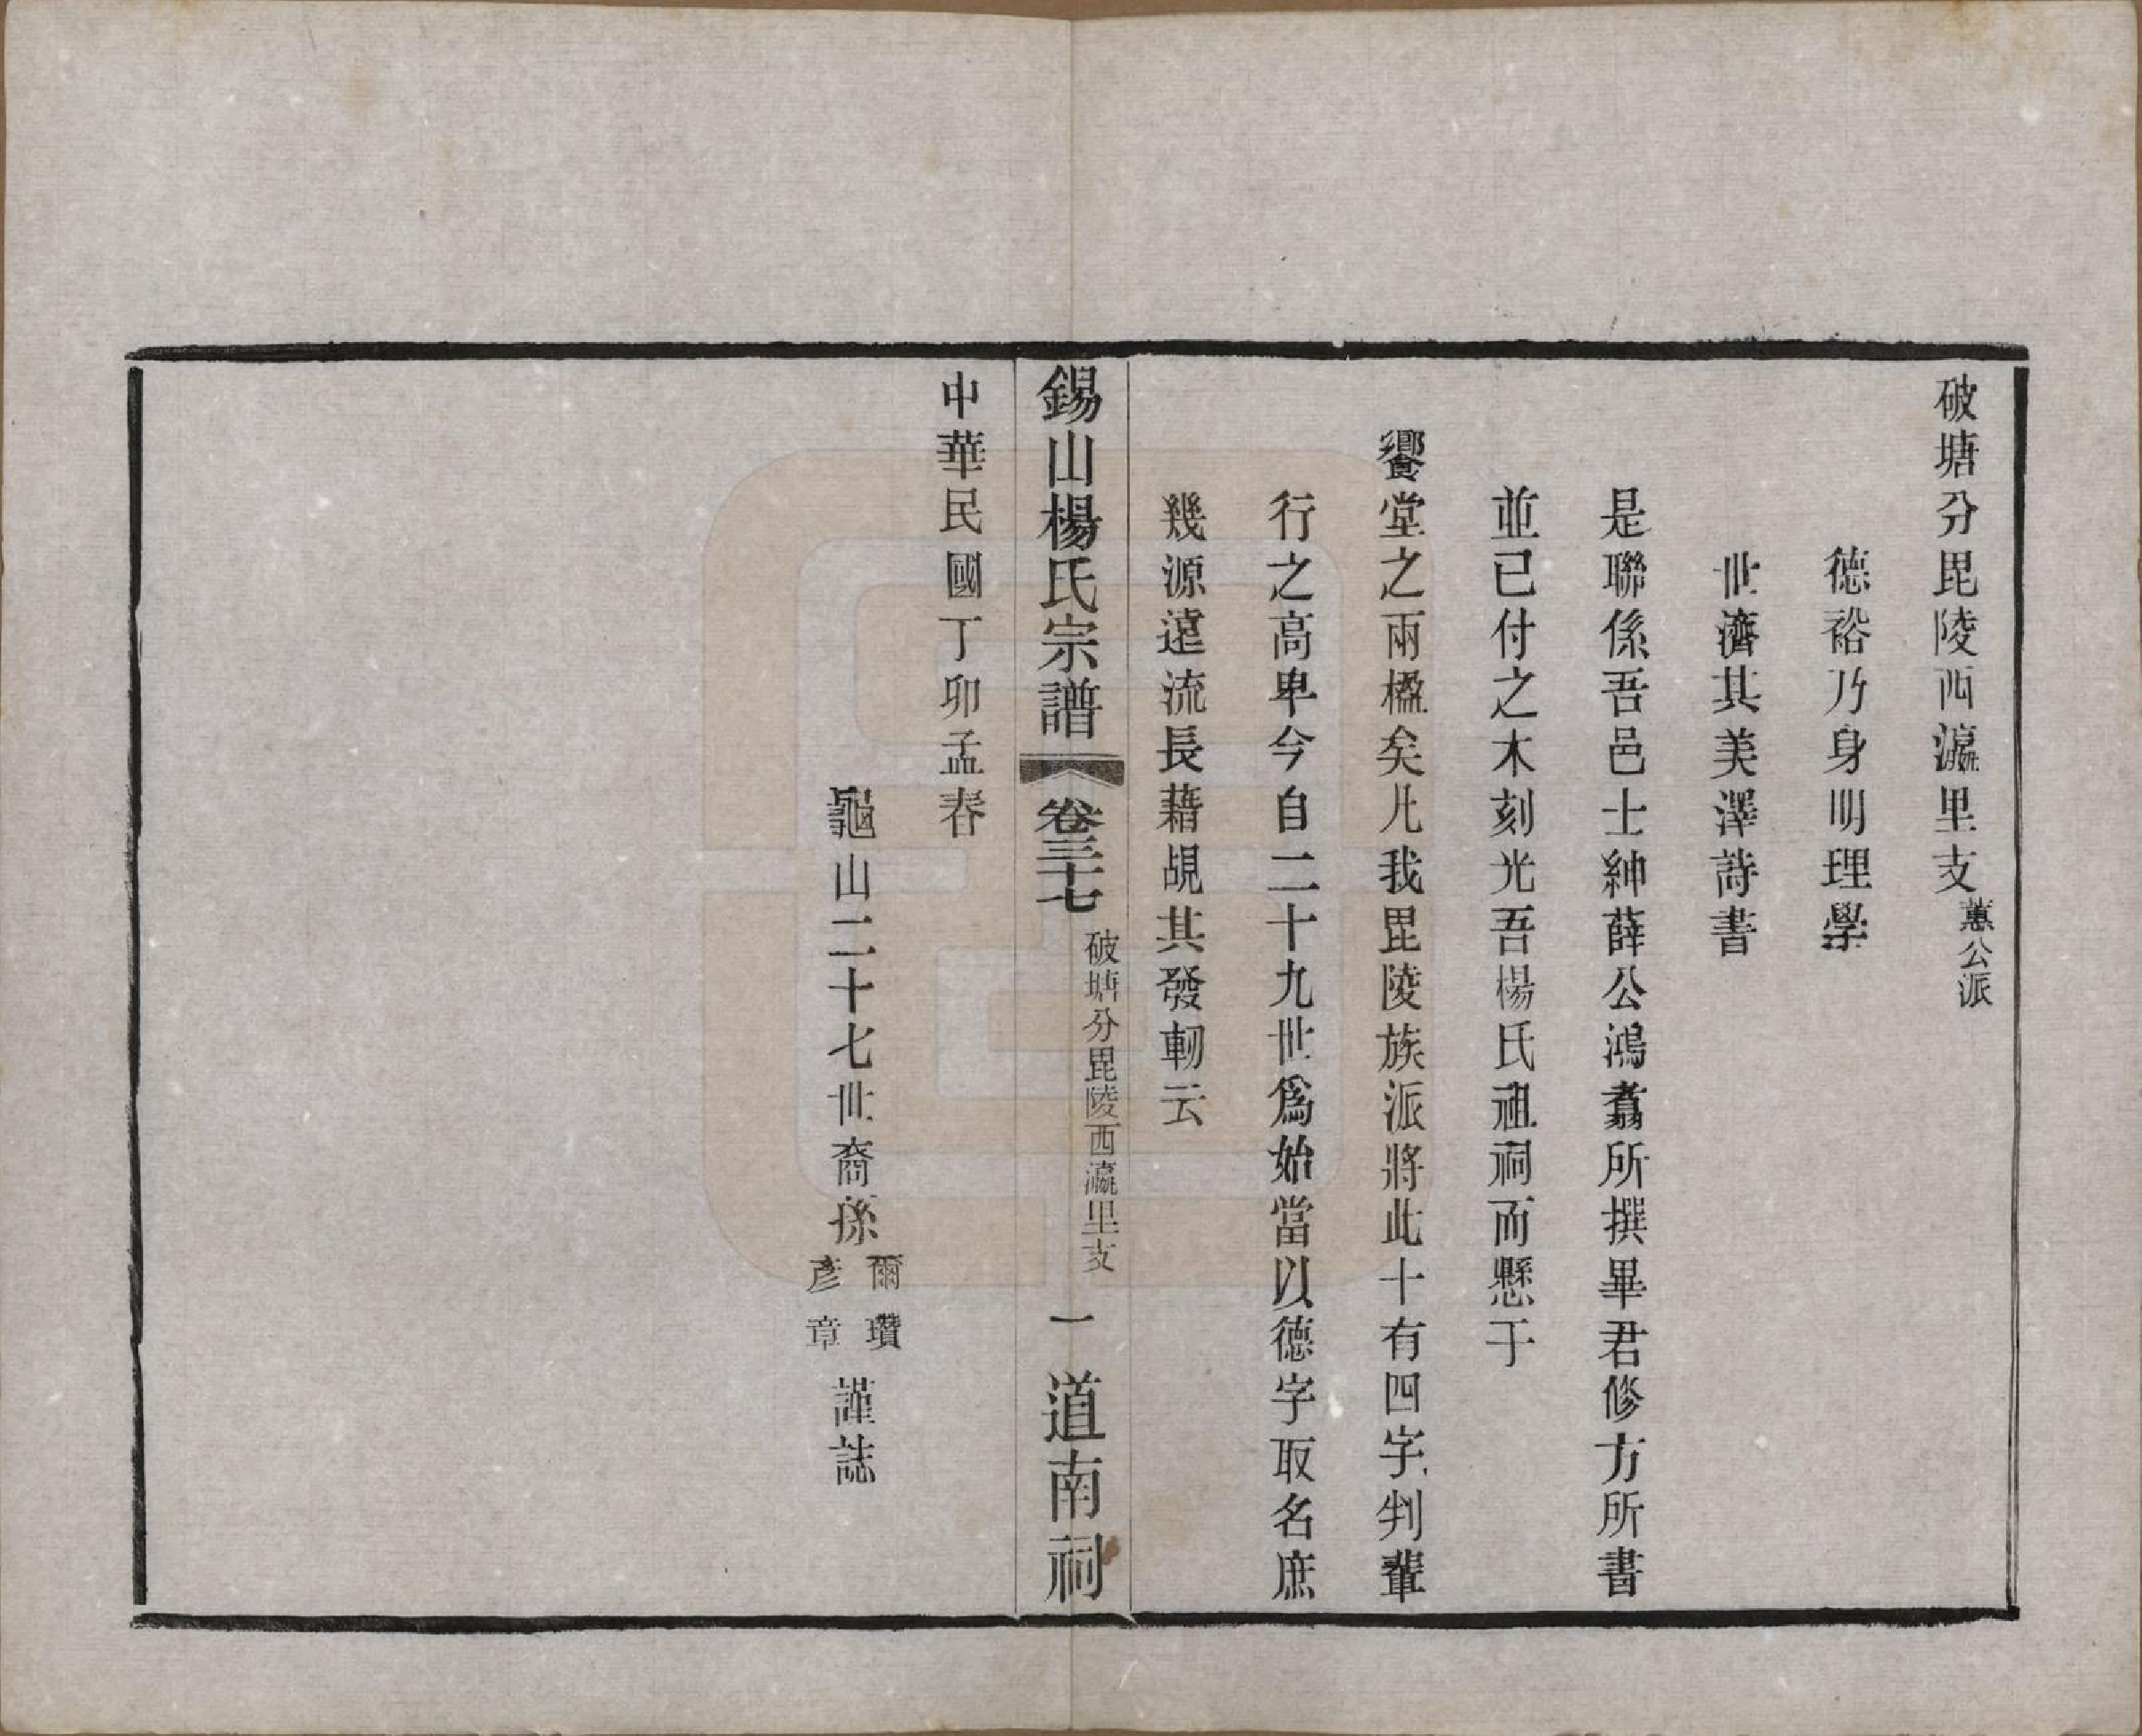 破塘分毘陵西瀛里支蕙公派
德裕乃身明理學
世濟其美澤詩書
是聯係吾邑士紳薛公鴻翥所撰畢君修方所書
並已付之木刻光吾楊氏祖祠而懸于
饗堂之兩楹矣凡我毘陵族派將此十有四字判輩
行之高卑今自二十九世爲始當以德字取名庶
幾源遠流長藉覘其發軔云
錫山楊氏宗譜 卷三十七 破塘分毘陵西瀛里支 一 道南祠
中華民國丁卯孟春
龜山二十七世裔孫爾瓚彥章謹誌